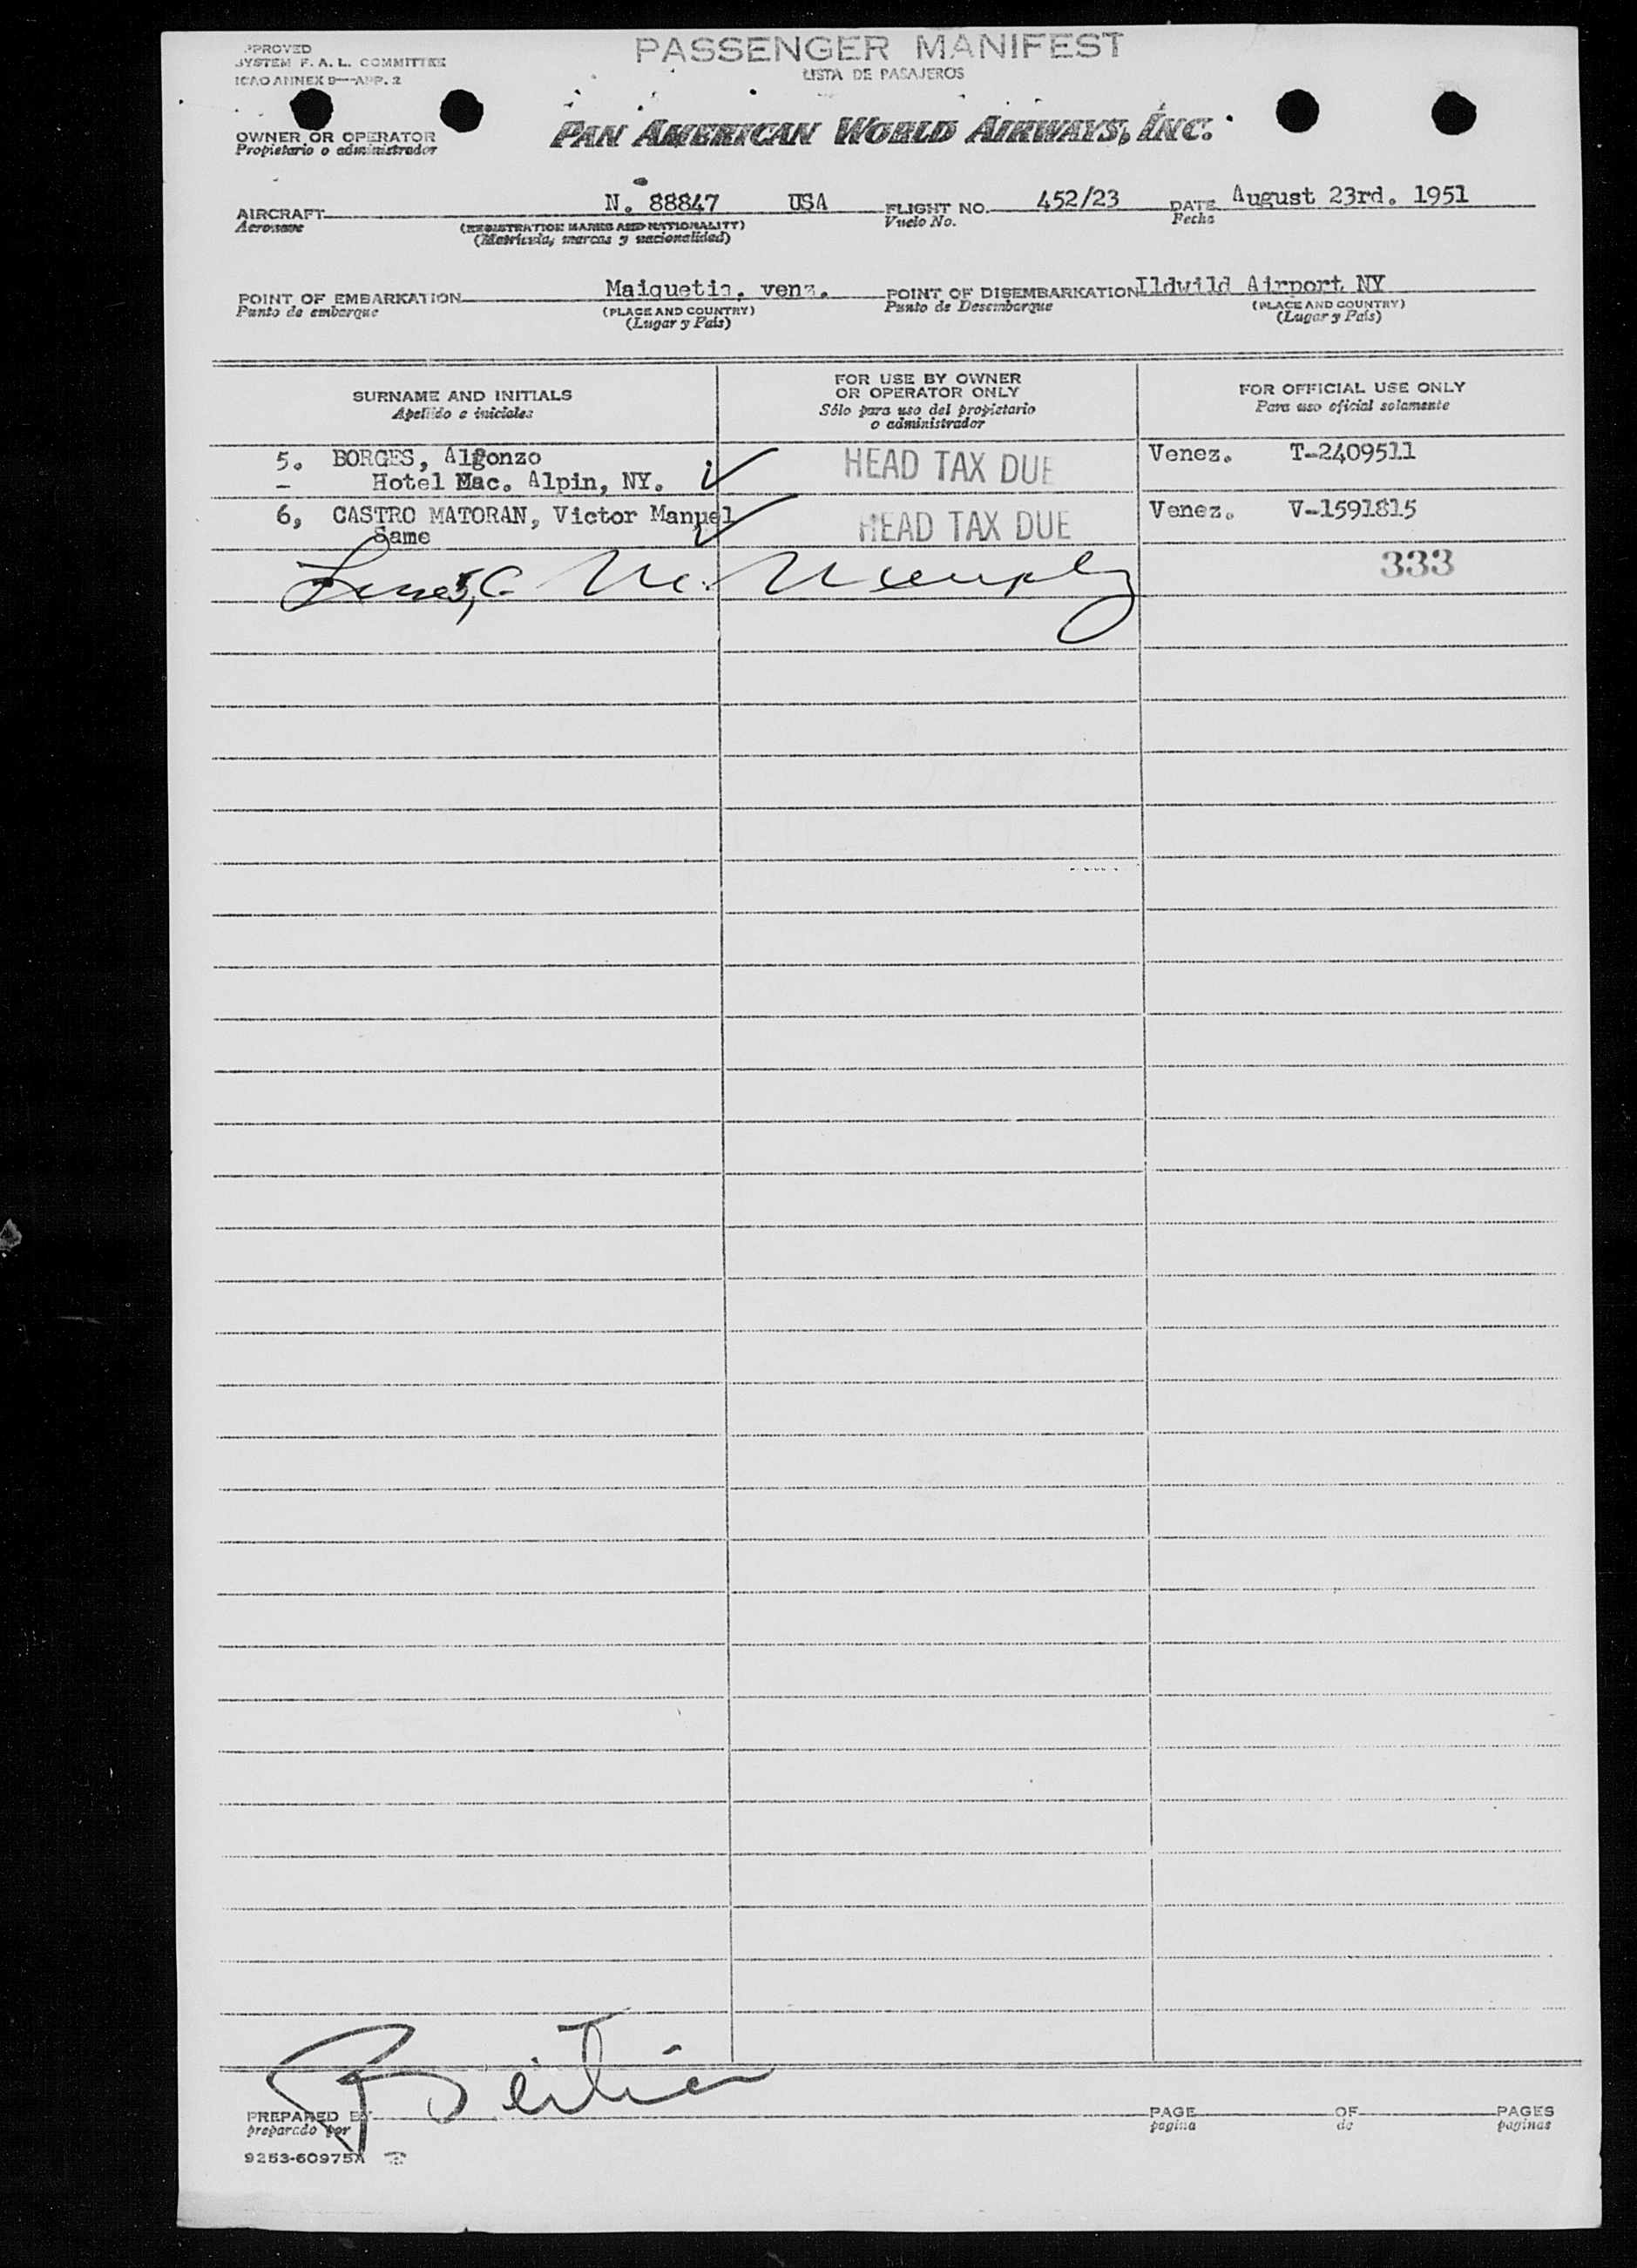 PPROVED
SYSTEM F. A. L. COMMITTEE
ICAO ANNEX 9—APP. 2
PASSENGER MANIFEST
LISTA DE PASAJEROS
OWNER OR OPERATOR
Propietario o administrador
PAN AMERICAN WORLD AIRWAYS, INC.
AIRCRAFT N. 88847 USA FLIGHT NO. 452/23 DATE August 23rd. 1951
Aeronave (REGISTRATION MARKS AND NATIONALITY) Vuelo No. Fecha
(Matrícula, marcas y nacionalidad)
POINT OF EMBARKATION Maiquetia, venz. POINT OF DISEMBARKATION Ildwild Airport NY
Punto de embarque (PLACE AND COUNTRY) Punto de Desembarque (PLACE AND COUNTRY)
(Lugar y País) (Lugar y País)
SURNAME AND INITIALS
Apellido e iniciales
FOR USE BY OWNER
OR OPERATOR ONLY
Sólo para uso del propietario
o administrador
FOR OFFICIAL USE ONLY
Para uso oficial solamente
5. BORGES, Alfonzo HEAD TAX DUE Venez. T-2409511
Hotel Mac. Alpin, NY.
6, CASTRO MATORAN, Victor Manuel HEAD TAX DUE Venez. V-1591815
Same
333
PREPARED BY PAGE OF PAGES
preparado por pagina de paginas
9253-60975A